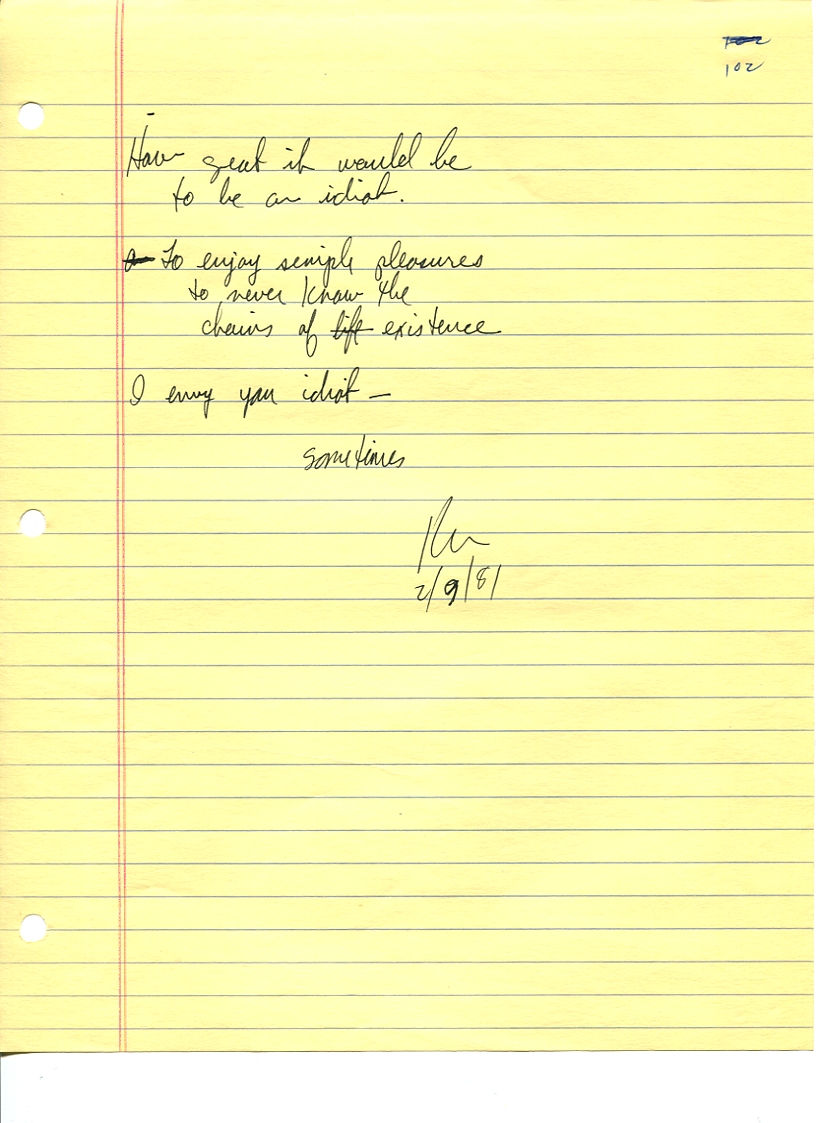 102
How great it would be
to be an idiot.
To enjoy simple pleasures
to never know the
chains of life existence
I envy you idiot —
sometimes
2/9/81